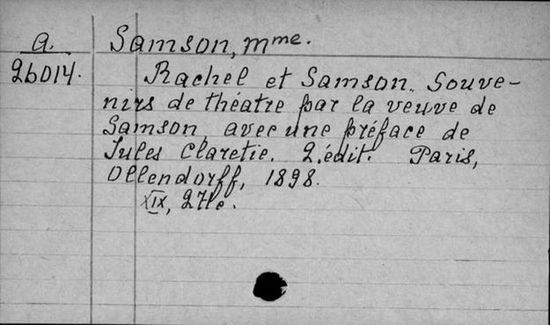 a. Samson, Mme.
26014. Rachel et Samson. Souve-
nirs de théatre par la veuve de
Samson, avec une préface de
Jules Claretie. 2. édit. Paris,
Ollendorff, 1898.
XIX,